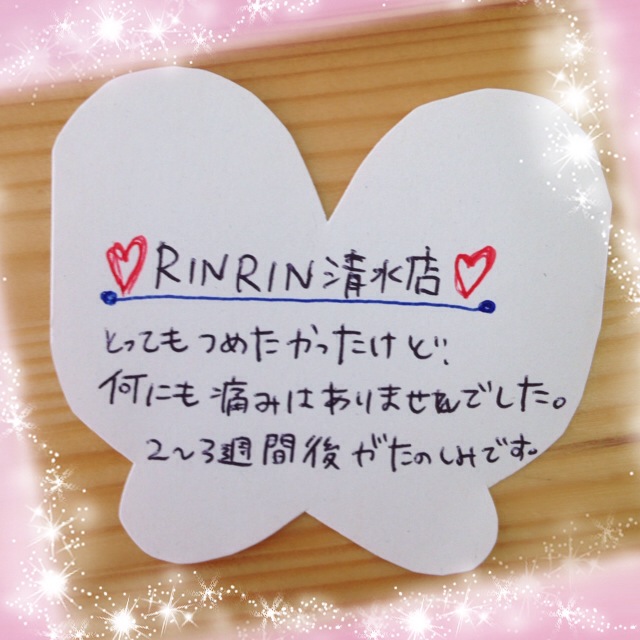 RINRIN清水店
とってもつめたかったけど、
何にも痛みはありませんでした。
2〜3週間後がたのしみです。